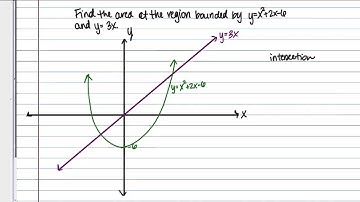 Find the area of the region bounded by y=x²+2x-6
and y=3x.
y
y=3x
intersection
y=x²+2x-6
x
-6